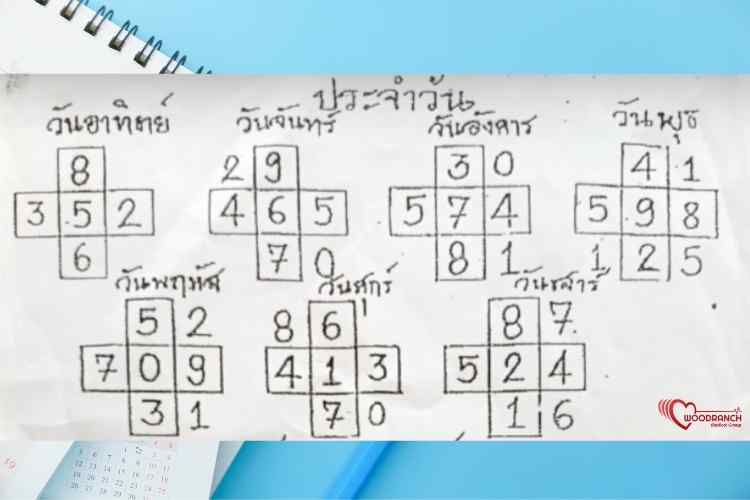 ประจำวัน
วันอาทิตย์ วันจันทร์ วันอังคาร วันพุธ
8 2 9 3 0 4 1
3 5 2 4 6 5 5 7 4 5 9 8
6 7 0 8 1 1 2 5
วันพฤหัส วันศุกร์ วันเสาร์
5 2 8 6 8 7
7 0 9 4 1 3 5 2 4
3 1 7 0 1 6
WOODRANCH
Medical Group
19